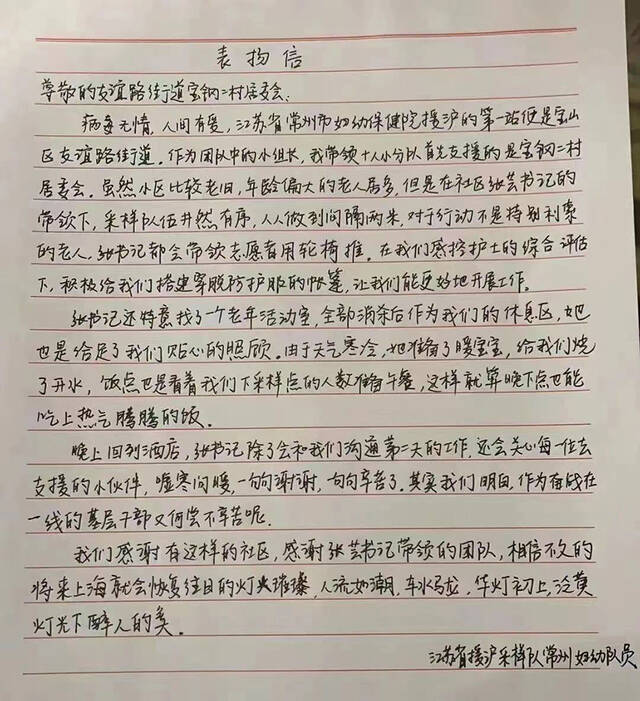 表扬信
尊敬的友谊路街道宝钢二村居委会:
病毒无情,人间有爱,江苏省常州市妇幼保健院援沪的第一站便是宝山
区友谊路街道。作为团队中的小组长,我带领十人小分队首先支援的是宝钢二村
居委会。虽然小区比较老旧,年龄偏大的老人居多,但是在社区张芸书记的
带领下,采样队伍井然有序,人人做到间隔两米,对于行动不是特别利索
的老人,张书记都会带领志愿者用轮椅推。在我们感控护士的综合评估
下,积极给我们搭建穿脱防护服的帐篷,让我们能更好地开展工作。
张书记还特意找了一个老年活动室,全部消杀后作为我们的休息区,她
也是给足了我们贴心的照顾。由于天气寒冷,她准备了暖宝宝,给我们烧
了开水,饭点也是看着我们下采样点的人数准备午餐,这样就算晚下点也能
吃上热气腾腾的饭。
晚上回到酒店,张书记除了会和我们沟通第二天的工作,还会关心每一位去
支援的小伙伴,嘘寒问暖,一句句谢谢,句句辛苦了。其实我们明白,作为奋战在
一线的基层干部又何尝不辛苦呢.
我们感谢有这样的社区,感谢张芸书记带领的团队,相信不久的
将来上海就会恢复往日的灯火璀璨,人流如潮,车水马龙,华灯初上,泛黄
灯光下醉人的美。
江苏省援沪采样队常州妇幼队员